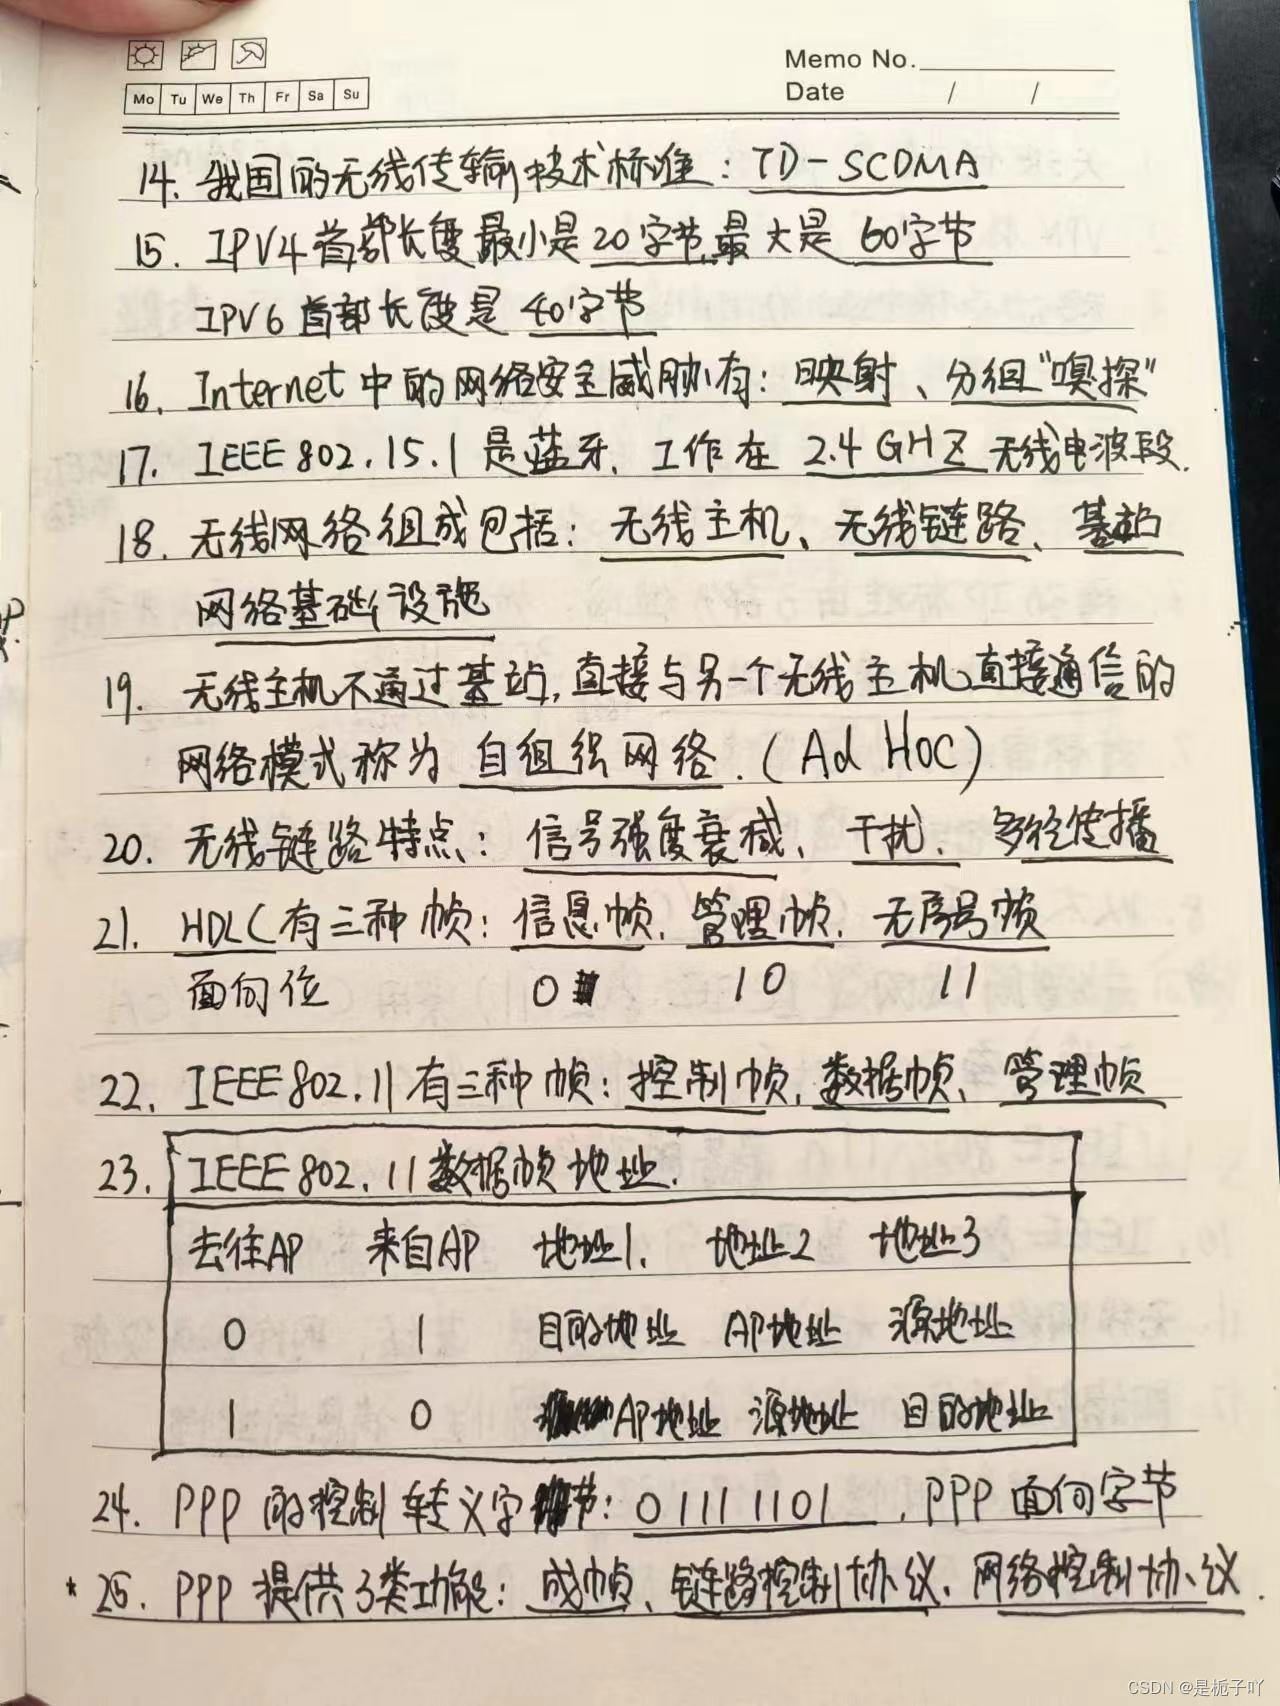 Memo No.
Mo Tu We Th Fr Sa Su
Date / /
14. 我国的无线传输技术标准：TD-SCDMA
15. IPV4首部长度最小是20字节,最大是60字节
IPV6首部长度是40字节
16. Internet中的网络安全威胁有：映射、分组“嗅探”
17. IEEE802.15.1是蓝牙，工作在2.4GHZ无线电波段.
18. 无线网络组成包括：无线主机、无线链路、基站
网络基础设施
19. 无线主机不通过基站,直接与另一个无线主机直接通信的
网络模式称为自组织网络.(Ad Hoc)
20. 无线链路特点：信号强度衰减、干扰、多径传播
21. HDLC有三种帧：信息帧、管理帧、无序号帧
面向位 0 10 11
22. IEEE802.11有三种帧：控制帧、数据帧、管理帧
23. IEEE802.11数据帧地址.
去往AP 来自AP 地址1. 地址2 地址3
0 1 目的地址 AP地址 源地址
1 0 AP地址 源地址 目的地址
24. PPP的控制转义字节：01111101，PPP面向字节
* 25. PPP提供3类功能：成帧、链路控制协议、网络控制协议.
CSDN @是栀子吖